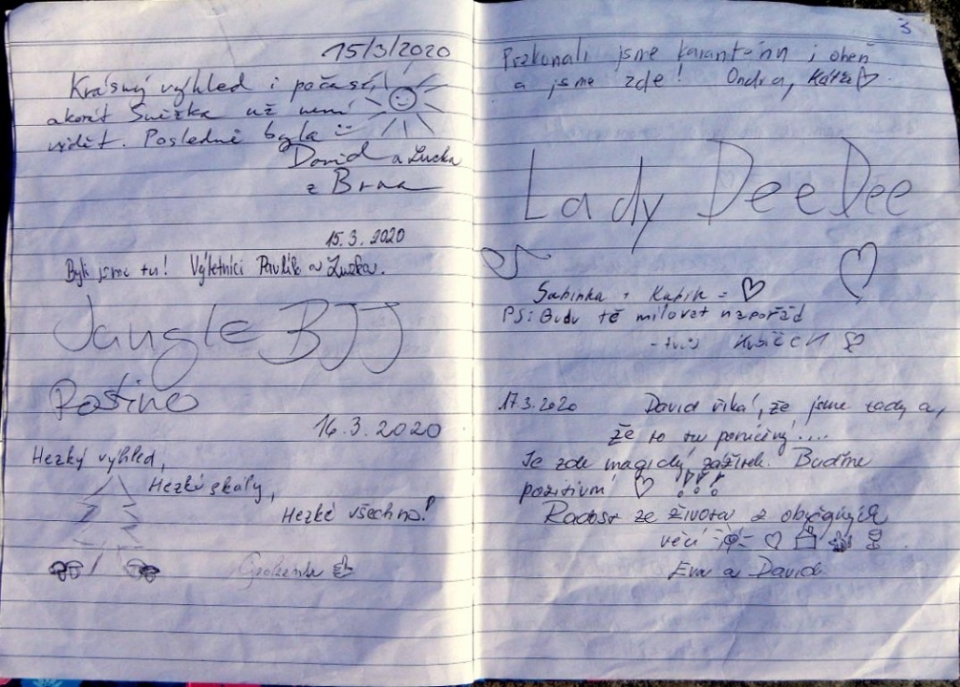 15/3/2020
Krásný výhled i počasí,
akorát Sněžka už není
vidět. Posledně byla
David a Lucka
z Brna
15.3. 2020
Byli jsme tu! Výletníci Pavlík a Lucka.
Jungle BJJ
16.3.2020
Hezký výhled,
Hezké skály,
Hezké všechno!
3
Překonali jsme karanténu i oheň
a jsme zde! Ondra, Katka
Lady DeeDee
Sabinka + Kubík =
PS: Budu tě milovat napořád
- tvůj
17.3.2020 David říká, že jsme tady a,
že to tu
Je zde magický zážitek. Buďme
pozitivní !!!
Radost ze života z obyčejných
věcí
Eva a David